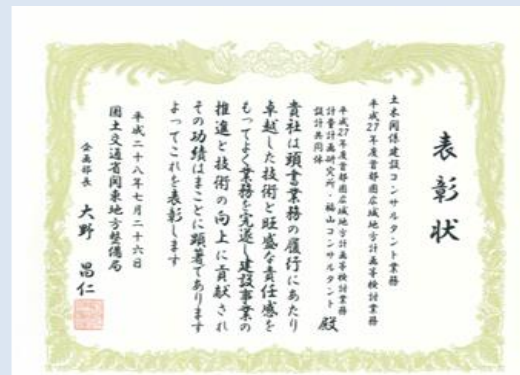 表彰状
土木関係建設コンサルタント業務
平成27年度首都圏広域地方計画等検討業務
平成27年度首都圏広域地方計画等検討業務
計量計画研究所・福山コンサルタント
設計共同体
殿
貴社は頭書業務の履行にあたり
卓越した技術と旺盛な責任感を
もってよく業務を完遂し建設事業の
推進と技術の向上に貢献され
その功績はまことに顕著であります
よってこれを表彰します
平成二十八年七月二十六日
国土交通省関東地方整備局
企画部長 大野 昌仁